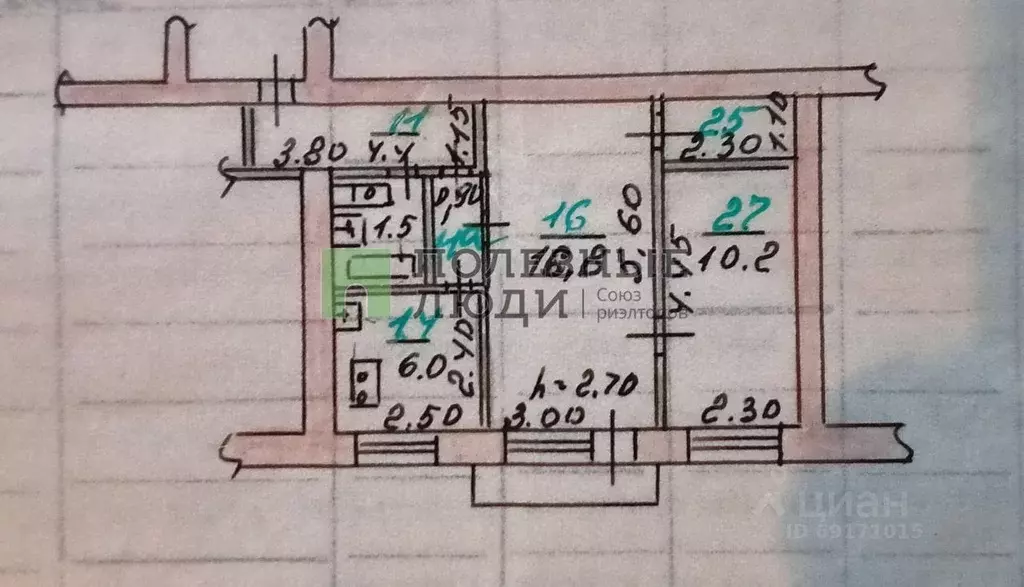 11
3.80
4.4
1.15
25
2.30
1.10
1.5
0,90
16
5.60
27
10.2
4.45
ПОЛЕЗНЫЕ
ЛЮДИ
Союз
риэлторов
6.0
2.40
2.50
h = 2.70
3.00
2.30
циан
ID 69171015